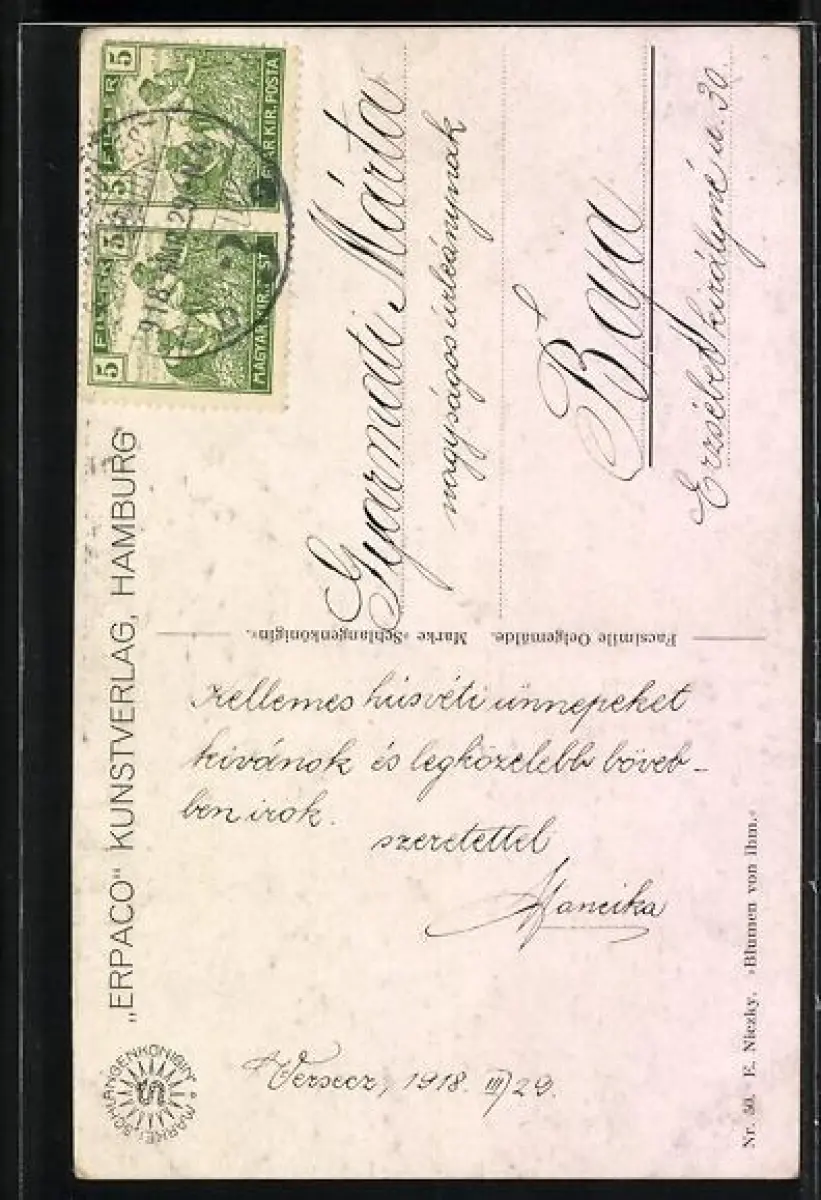 5 FILLER 5
MAGYAR KIR. POSTA
5 FILLER 5
MAGYAR KIR. POSTA
918 MÁR. 29
Gyarmati Márta
nagyságos úrleánynak
Baja
Erzsébet királyné u. 30.
"ERPACO" KUNSTVERLAG, HAMBURG
Facsimile Oelgemälde. Marke »Schlangenkönigin«.
Kellemes húsvéti ünnepeket
kivánok és legközelebb böveb-
ben irok.
szeretettel
Mancika
Versecz, 1918. III/29.
MARKE: SCHLANGENKÖNIGIN
Nr. 50. E. Niczky. »Blumen von ihm.«